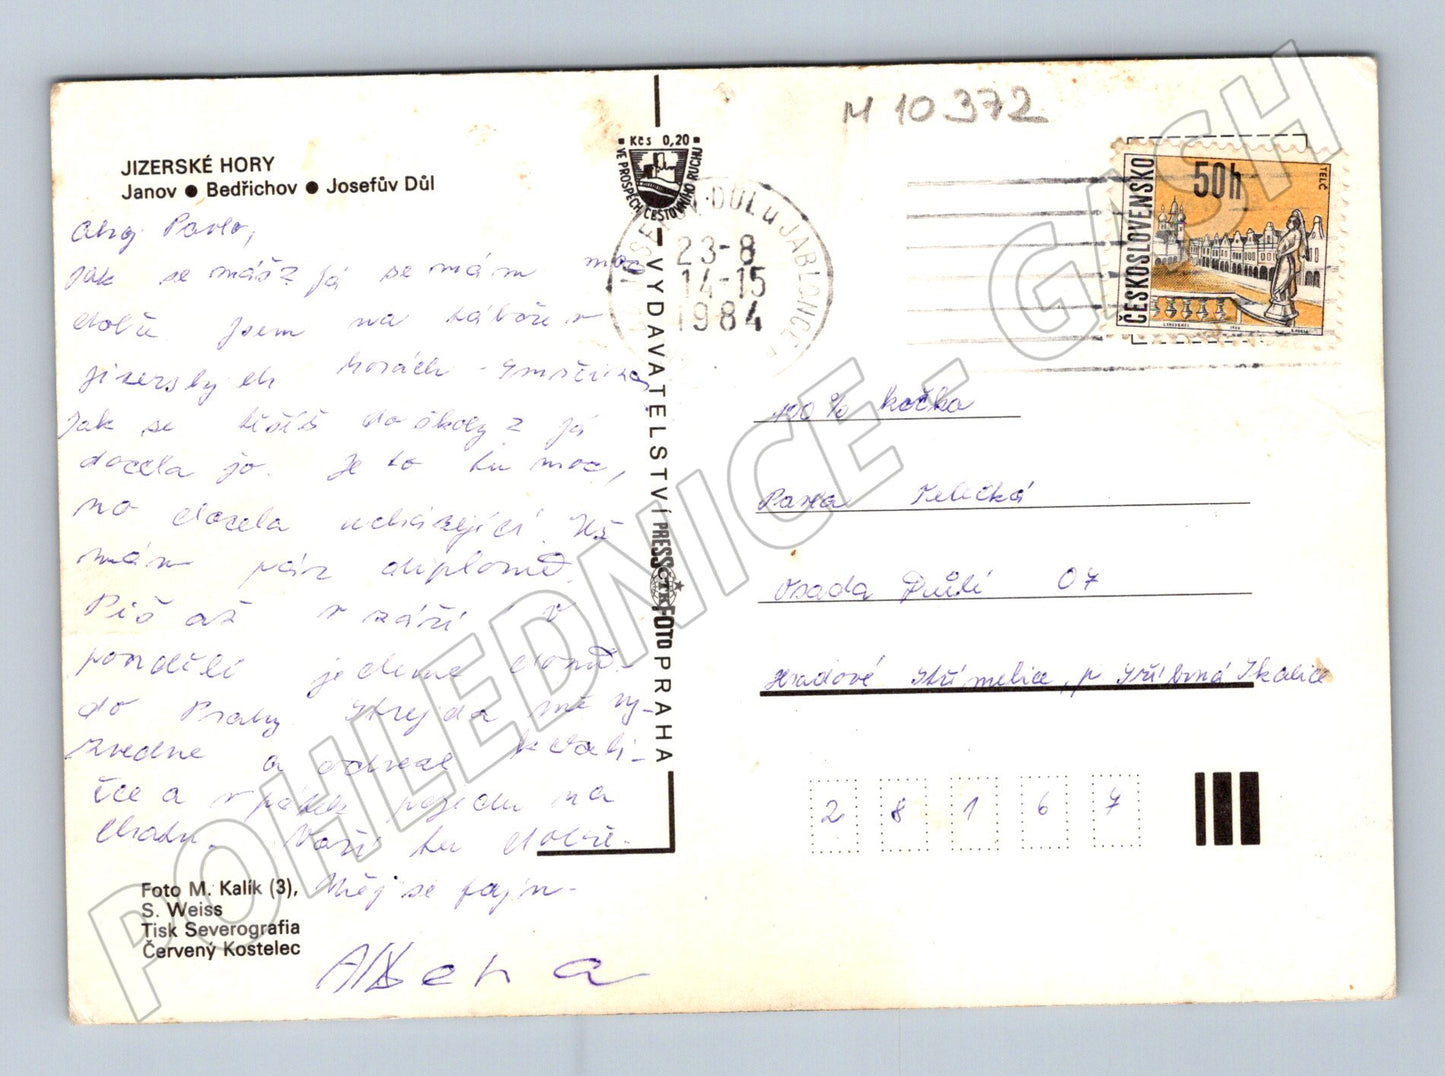 JIZERSKÉ HORY
Janov • Bedřichov • Josefův Důl
Ahoj Pavlo,
Jak se máš? já se mám moc
dobře. Jsem na táboře v
jizerskych horách - Smržovka
Jak se těšíš do školy? já
docela jo. Je to tu moc,
no docela ucházející. Už
mám pár diplomů.
Piš až v září! V
pondělí jedeme domů
do Prahy. Strejda mě vy-
zvedne a
a v pátek pojedu na
chatu. Vaří tu dobře.
Měj se fajn.
Alena
Foto M. Kalík (3),
S. Weiss
Tisk Severografia
Červený Kostelec
Kčs 0,20
VE PROSPĚCH CESTOVNÍHO RUCHU
VYDAVATELSTVÍ PRESSFOTO PRAHA
ČTK
JOSEFŮV DŮL u JABLONCE
23-8
14-15
1984
M 10372
ČESKOSLOVENSKO
50h
TELČ
100% kočka
Pavla
Osada Důlí 07
Hradové Střimelice, p Stříbrná Skalice
2 8 1 6 7
POHLEDNICE - GASH